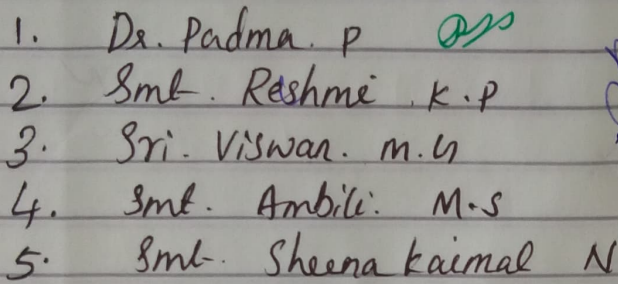 1. Dr. Padma. P
2. Smt. Reshmi. K.P
3. Sri. Viswan. M.G
4. Smt. Ambili. M.S
5. Smt. Sheena Kaimal N